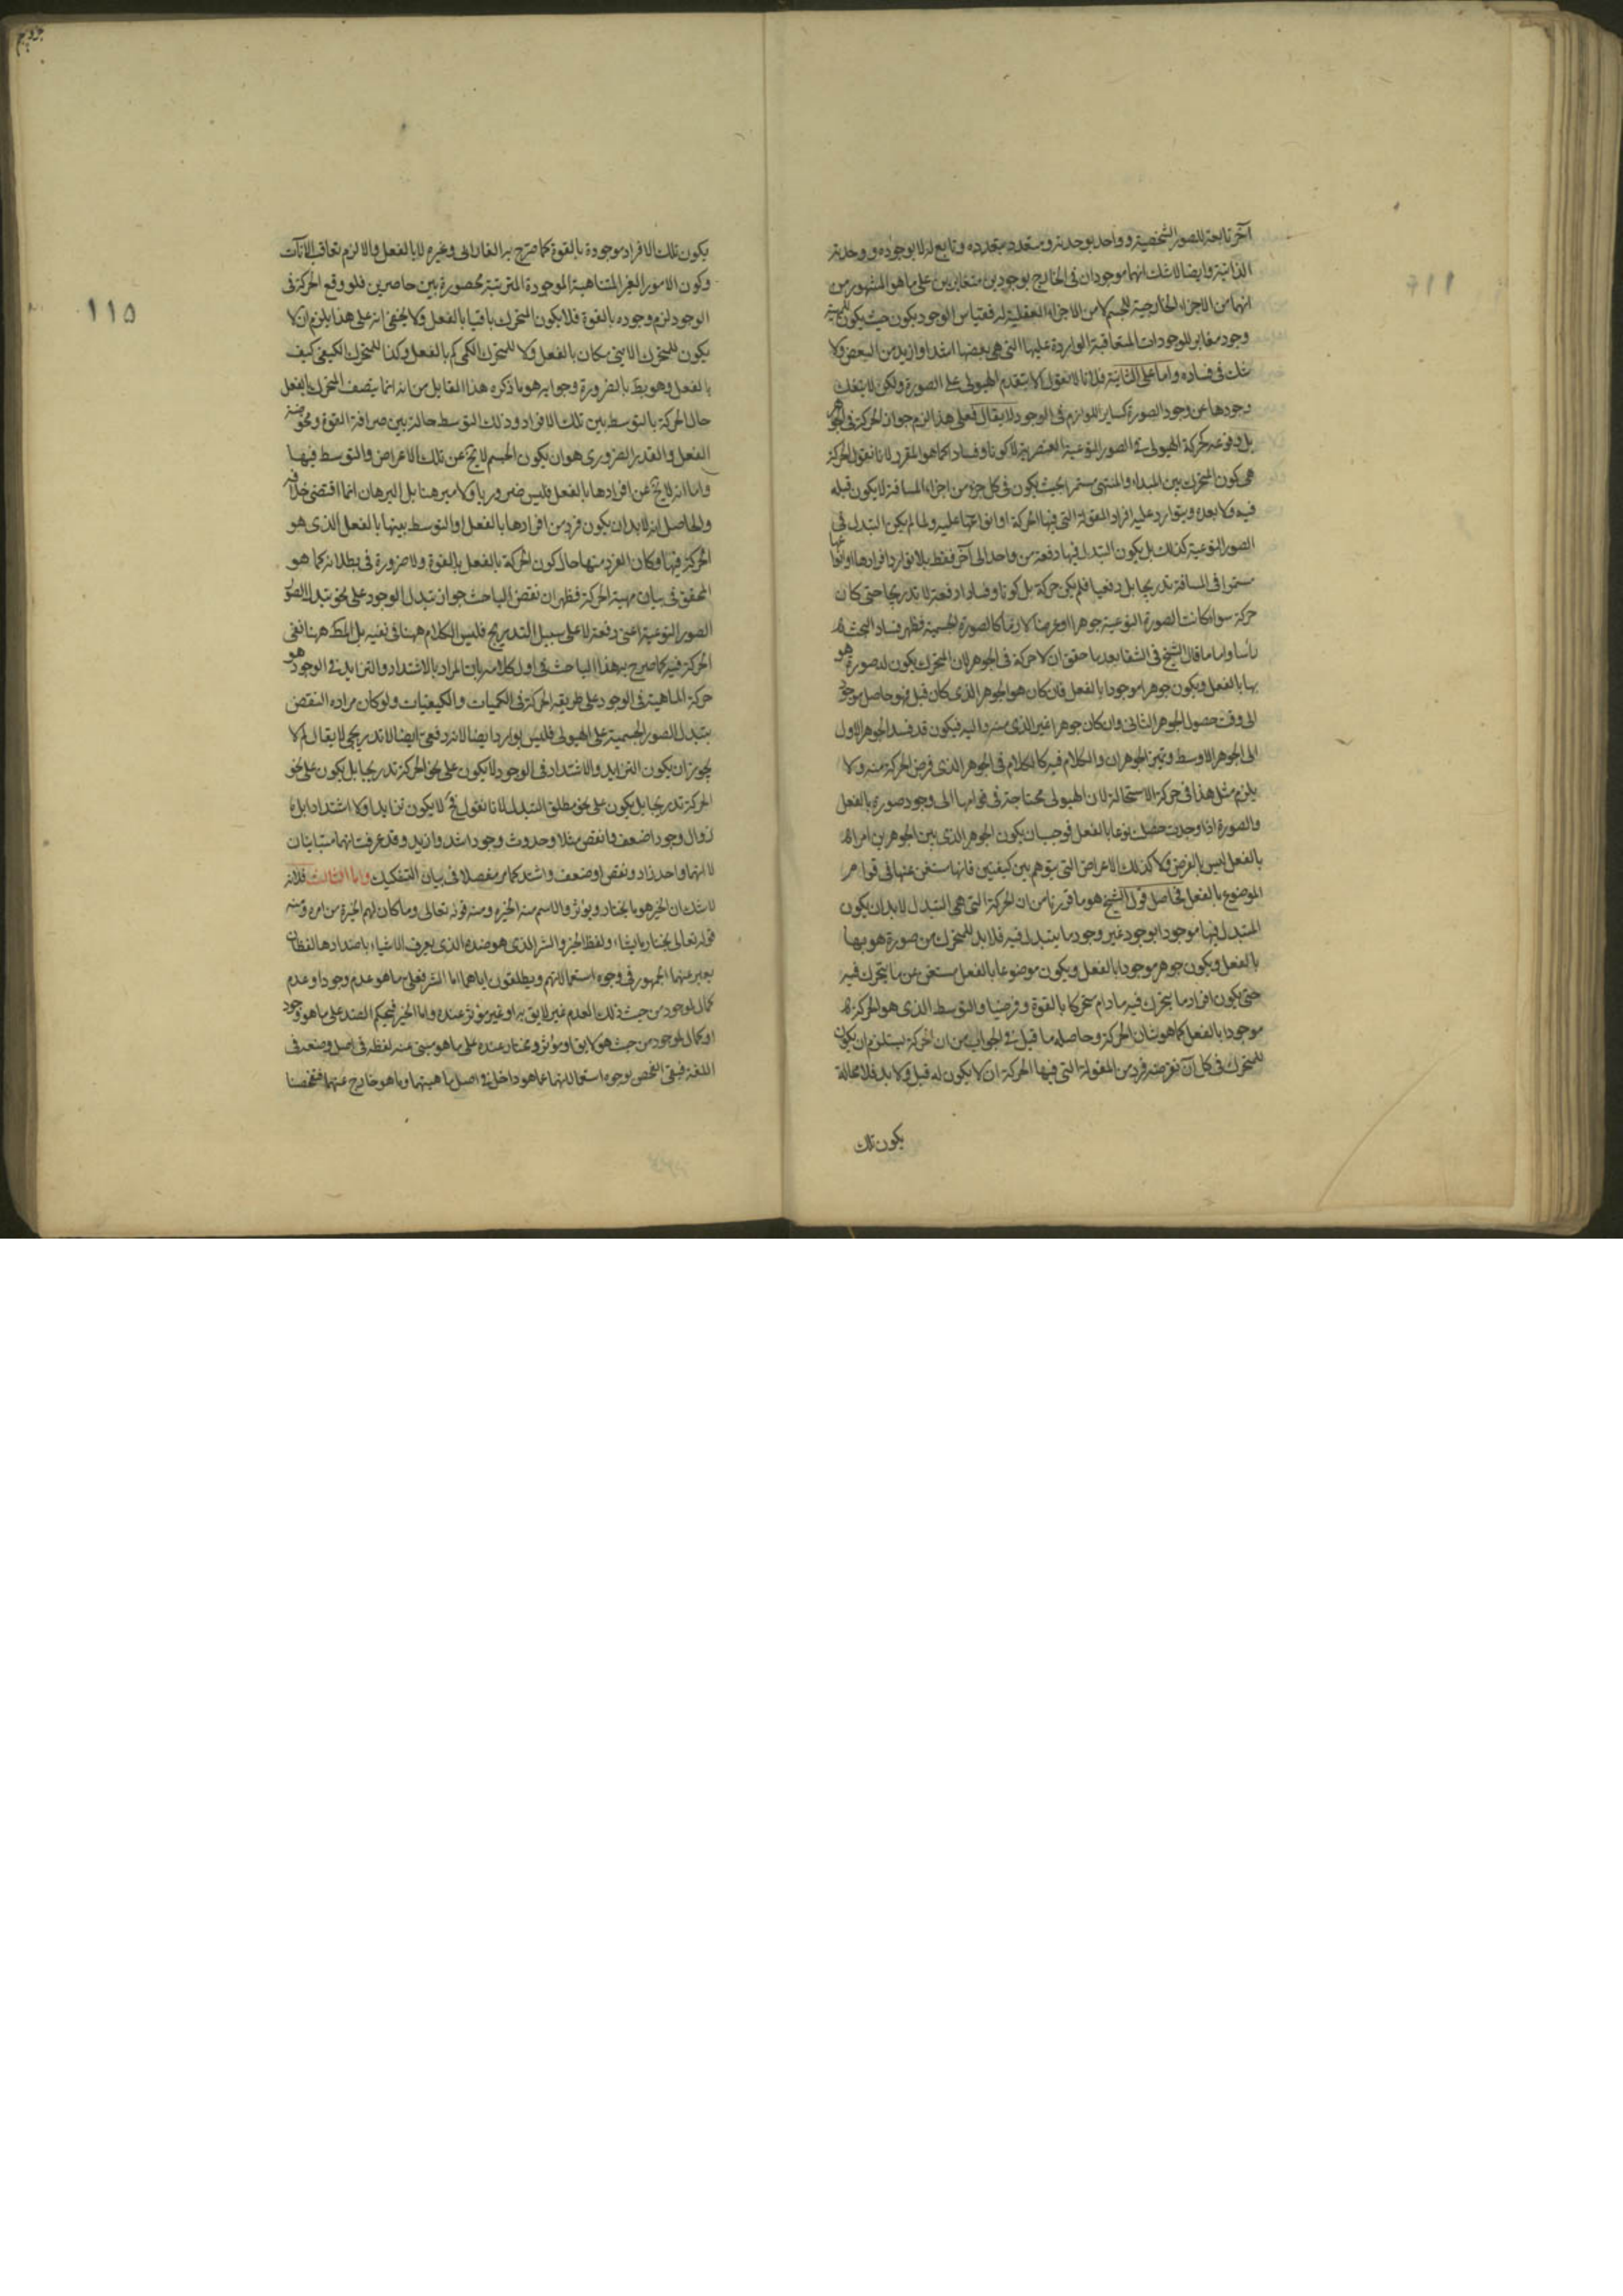 آخر تابعة للصور الشخصية وواحد بوحدته ومتعدد بتعدده وتابع له لا بوجوده ووحدته
الذاتية وايضا لا شك انهما موجودان فى الخارج بوجودين متغايرين على ما هو المشهور من
انهما من الاجزاء الخارجية للجسم لا من الاجزاء العقلية له فقياس الوجود بكون حيث يكون للمهية
وجود مغاير للوجودات المتعاقبة الواردة عليها التى هى بعضها اشد او ازيد من البعض ولا
شك فى فساده واما على الثانية فلانا لا نقول لا يتقدم الهيولى على الصورة ولكن لا ينفك
وجودها عن وجود الصورة كساير اللوازم فى الوجود لا يقال فعلى هذا لزم جواز الحركة فى الجوهر
بل وقوعه كحركة الهيولى فى الصور النوعية العنصرية لا كونا وفسادا كما هو المقرر لانا نقول الحركة
هى كون المتحرك بين المبداء والمنتهى مستمرا بحيث يكون فى كل جزء من اجزاء المسافة لا يكون قبله
فيه ولا بعده ويتوارد عليه افراد المقولة التى فيها الحركة او انواعها عليه ولما لم يكن التبدل فى
الصور النوعية كذلك بل يكون التبدل فيها دفعة من واحد الى آخر فقط بلا توارد افرادها او انواعها
مستمرا فى المسافة تدريجا بل دفعيا فلم يكن حركة بل كونا وفسادا دفعة لا تدريجا حتى كان
حركة سواء كانت الصورة النوعية جوهرا او عرضا لازما كالصورة الجسمية فظهر فساد البحث
رأسا واما ما قال الشيخ فى الشفا بعد ما حقق ان لا حركة فى الجوهر لان المتحرك يكون له صورة هو
بها بالفعل ويكون جوهرا موجودا بالفعل فان كان هو الجوهر الذى كان قبل فهو حاصل موجود
الى وقت حصول الجوهر الثانى وان كان جوهرا غير الذى منه واليه فيكون قد فسد الجوهر الاول
الى الجوهر الاوسط وتميز الجوهران والكلام فيه كالكلام فى الجوهر الذى فرض الحركة منه ولا
يلزم مثل هذا فى حركة الاستحالة لان الهيولى محتاجة فى قوامها الى وجود صورة بالفعل
والصورة اذا وجدت حصلت نوعا بالفعل فوجب ان يكون الجوهر الذى بين الجوهرين امرا
بالفعل ليس بالفرض ولا كذلك الاعراض التى يتوهم بين كيفيتين فانها مستغن عنها فى قوام
الموضوع بالفعل فحاصل قول الشيخ هو ما قررنا من ان الحركة التى هى التبدل لابد ان يكون
المتبدل فيها موجودا بوجود غير وجود ما يتبدل فيه فلابد للمتحرك من صورة هو بها
بالفعل ويكون جوهر موجودا بالفعل ويكون موضوعا بالفعل مستغن عن ما يتحرك فيه
حتى يكون افراد ما يتحرك فيه ما دام متحركا بالقوة وفرضيا والتوسط الذى هو الحركة
موجودا بالفعل كما هو شان الحركة وحاصله ما قيل فى الجواب من ان الحركة يستلزم ان يكون
للمتحرك فى كل آن نفرضه فرد من المقولة التى فيها الحركة ان لا يكون له قبل ولا بعد فلا محالة
يكون تلك
١١٥
يكون تلك الافراد موجودة بالقوة كما صرح به الفارابى وغيره لا بالفعل والا لزم تعاقب الآنات
وكون الامور الغير المتناهية الموجودة المترتبة محصورة بين حاصرين فلو وقع الحركة فى
الوجود لزم وجوده بالقوة فلا يكون المتحرك باقيا بالفعل ولا يخفى انه على هذا يلزم ان لا
يكون للمتحرك الاينى مكان بالفعل ولا للمتحرك الكمى كم بالفعل وكذا للمتحرك الكيفى كيف
بالفعل وهو بط بالضرورة وجوابه هو ما ذكره هذا القايل من انه انما يتصف المتحرك بالفعل
حال الحركة بالتوسط بين تلك الافراد وذلك التوسط حالة بين صرافة القوة ومحوضة
الفعل والقدر الضرورى هو ان يكون الجسم لا يخ عن تلك الاعراض والتوسط فيها
واما انه لا يخ عن افرادها بالفعل فليس ضروريا ولا مبرهنا بل البرهان انما اقتضى خلافه
والحاصل انه لابد ان يكون فرد من افرادها بالفعل او التوسط بينها بالفعل الذى هو
الحركة فيها وكان الفرد منها حال كون الحركة بالفعل بالقوة ولا ضرورة فى بطلانه كما هو
المحقق فى بيان مهية الحركة فظهر ان نقض الباحث جواز تبدل الوجود على نحو تبدل الصور
الصور النوعية اعنى دفعة لا على سبيل التدريج فليس الكلام ههنا فى نفيه بل المط ههنا نفى
الحركة فيه كما صرح به هذا الباحث فى اول كلامه بان المراد بالاشتداد والتزايد فى الوجود هو
حركة الماهية فى الوجود على طريقة الحركة فى الكميات والكيفيات ولو كان مراده النقض
بتبدل الصور الجسمية على الهيولى فليس بوارد ايضا لانه دفعى ايضا لا تدريجى لا يقال لم لا
يجوز ان يكون التزايد والاشتداد فى الوجود لا يكون على نحو الحركة تدريجا بل يكون على نحو
الحركة تدريجا بل يكون على نحو مطلق التبدل لانا نقول فح لا يكون تزايدا ولا اشتدادا بل
زوال وجود اضعف وانقص مثلا وحدوث وجود اشد وازيد وقد عرفت انهما متباينان
لا انهما واحد زاد ونقص او ضعف واشتد كما مر مفصلا فى بيان التشكيك واما الثالث فلانه
لا شك ان الخير هو ما يختار ويؤثر والاسم منه الخيرة ومنه قوله تعالى وما كان لهم الخيرة من امره ومنه
قوله تعالى يختار ما يشاء ولفظ الخير والشر الذى هو ضده الذى يعرف الاشياء باضدادها لفظان
يعبر عنهما الجمهور فى وجوه استعمالاتهم ويطلقون اياهما اما الشر فعلى ما هو عدم وجود او عدم
كمال لموجود من حيث ذلك العدم غير لايق به او غير مؤثر عنده واما الخير فبحكم الضد على ما هو وجود
او كمال لموجود من حيث هو لايق او مؤثر ومختار عنده على ما هو مبنى عنه لفظه فى اصل وضعه فى
اللغة فبقى الفحص لوجوه استعمالاتهما عما هو داخل فى اصل ماهيتهما وما هو خارج عنهما ففحصنا